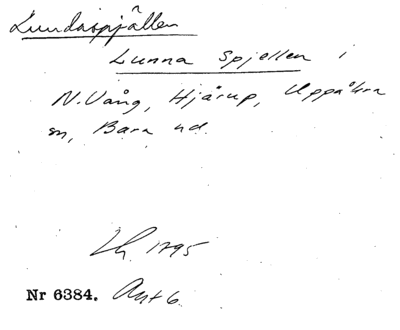 Lundaspjällen
Lunna Spjellen i
N. Vång, Hjärup, Uppåkra
sn, Bara hd.
Lh. 1795
Nr 6384. Ant 6.